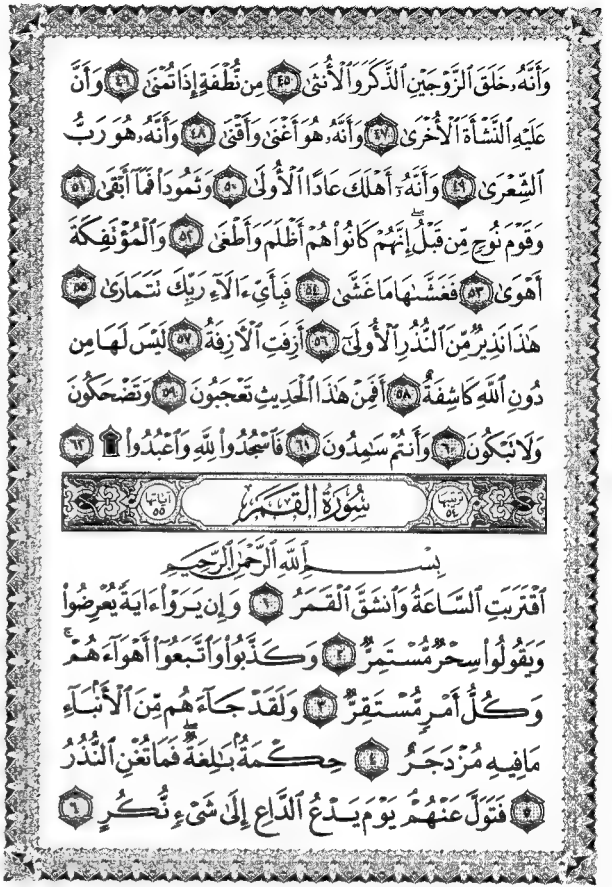 وَأَنَّهُۥ خَلَقَ ٱلزَّوْجَيْنِ ٱلذَّكَرَ وَٱلْأُنثَىٰ ٤٥ مِن نُّطْفَةٍ إِذَا تُمْنَىٰ ٤٦ وَأَنَّ
عَلَيْهِ ٱلنَّشْأَةَ ٱلْأُخْرَىٰ ٤٧ وَأَنَّهُۥ هُوَ أَغْنَىٰ وَأَقْنَىٰ ٤٨ وَأَنَّهُۥ هُوَ رَبُّ
ٱلشِّعْرَىٰ ٤٩ وَأَنَّهُۥٓ أَهْلَكَ عَادًا ٱلْأُولَىٰ ٥٠ وَثَمُودَا۟ فَمَآ أَبْقَىٰ ٥١
وَقَوْمَ نُوحٍ مِّن قَبْلُ ۖ إِنَّهُمْ كَانُوا۟ هُمْ أَظْلَمَ وَأَطْغَىٰ ٥٢ وَٱلْمُؤْتَفِكَةَ
أَهْوَىٰ ٥٣ فَغَشَّىٰهَا مَا غَشَّىٰ ٥٤ فَبِأَىِّ ءَالَآءِ رَبِّكَ تَتَمَارَىٰ ٥٥
هَٰذَا نَذِيرٌ مِّنَ ٱلنُّذُرِ ٱلْأُولَىٰٓ ٥٦ أَزِفَتِ ٱلْءَازِفَةُ ٥٧ لَيْسَ لَهَا مِن
دُونِ ٱللَّهِ كَاشِفَةٌ ٥٨ أَفَمِنْ هَٰذَا ٱلْحَدِيثِ تَعْجَبُونَ ٥٩ وَتَضْحَكُونَ
وَلَا تَبْكُونَ ٦٠ وَأَنتُمْ سَٰمِدُونَ ٦١ فَٱسْجُدُوا۟ لِلَّهِ وَٱعْبُدُوا۟ ۩ ٦٢
ترتيبها ٥٤ سُورَةُ القَمَرِ آياتها ٥٥
بِسْمِ ٱللَّهِ ٱلرَّحْمَٰنِ ٱلرَّحِيمِ
ٱقْتَرَبَتِ ٱلسَّاعَةُ وَٱنشَقَّ ٱلْقَمَرُ ١ وَإِن يَرَوْا۟ ءَايَةً يُعْرِضُوا۟
وَيَقُولُوا۟ سِحْرٌ مُّسْتَمِرٌّ ٢ وَكَذَّبُوا۟ وَٱتَّبَعُوٓا۟ أَهْوَآءَهُمْ ۚ
وَكُلُّ أَمْرٍ مُّسْتَقِرٌّ ٣ وَلَقَدْ جَآءَهُم مِّنَ ٱلْأَنۢبَآءِ
مَا فِيهِ مُزْدَجَرٌ ٤ حِكْمَةٌۢ بَٰلِغَةٌ ۖ فَمَا تُغْنِ ٱلنُّذُرُ
٥ فَتَوَلَّ عَنْهُمْ ۘ يَوْمَ يَدْعُ ٱلدَّاعِ إِلَىٰ شَىْءٍ نُّكُرٍ ٦